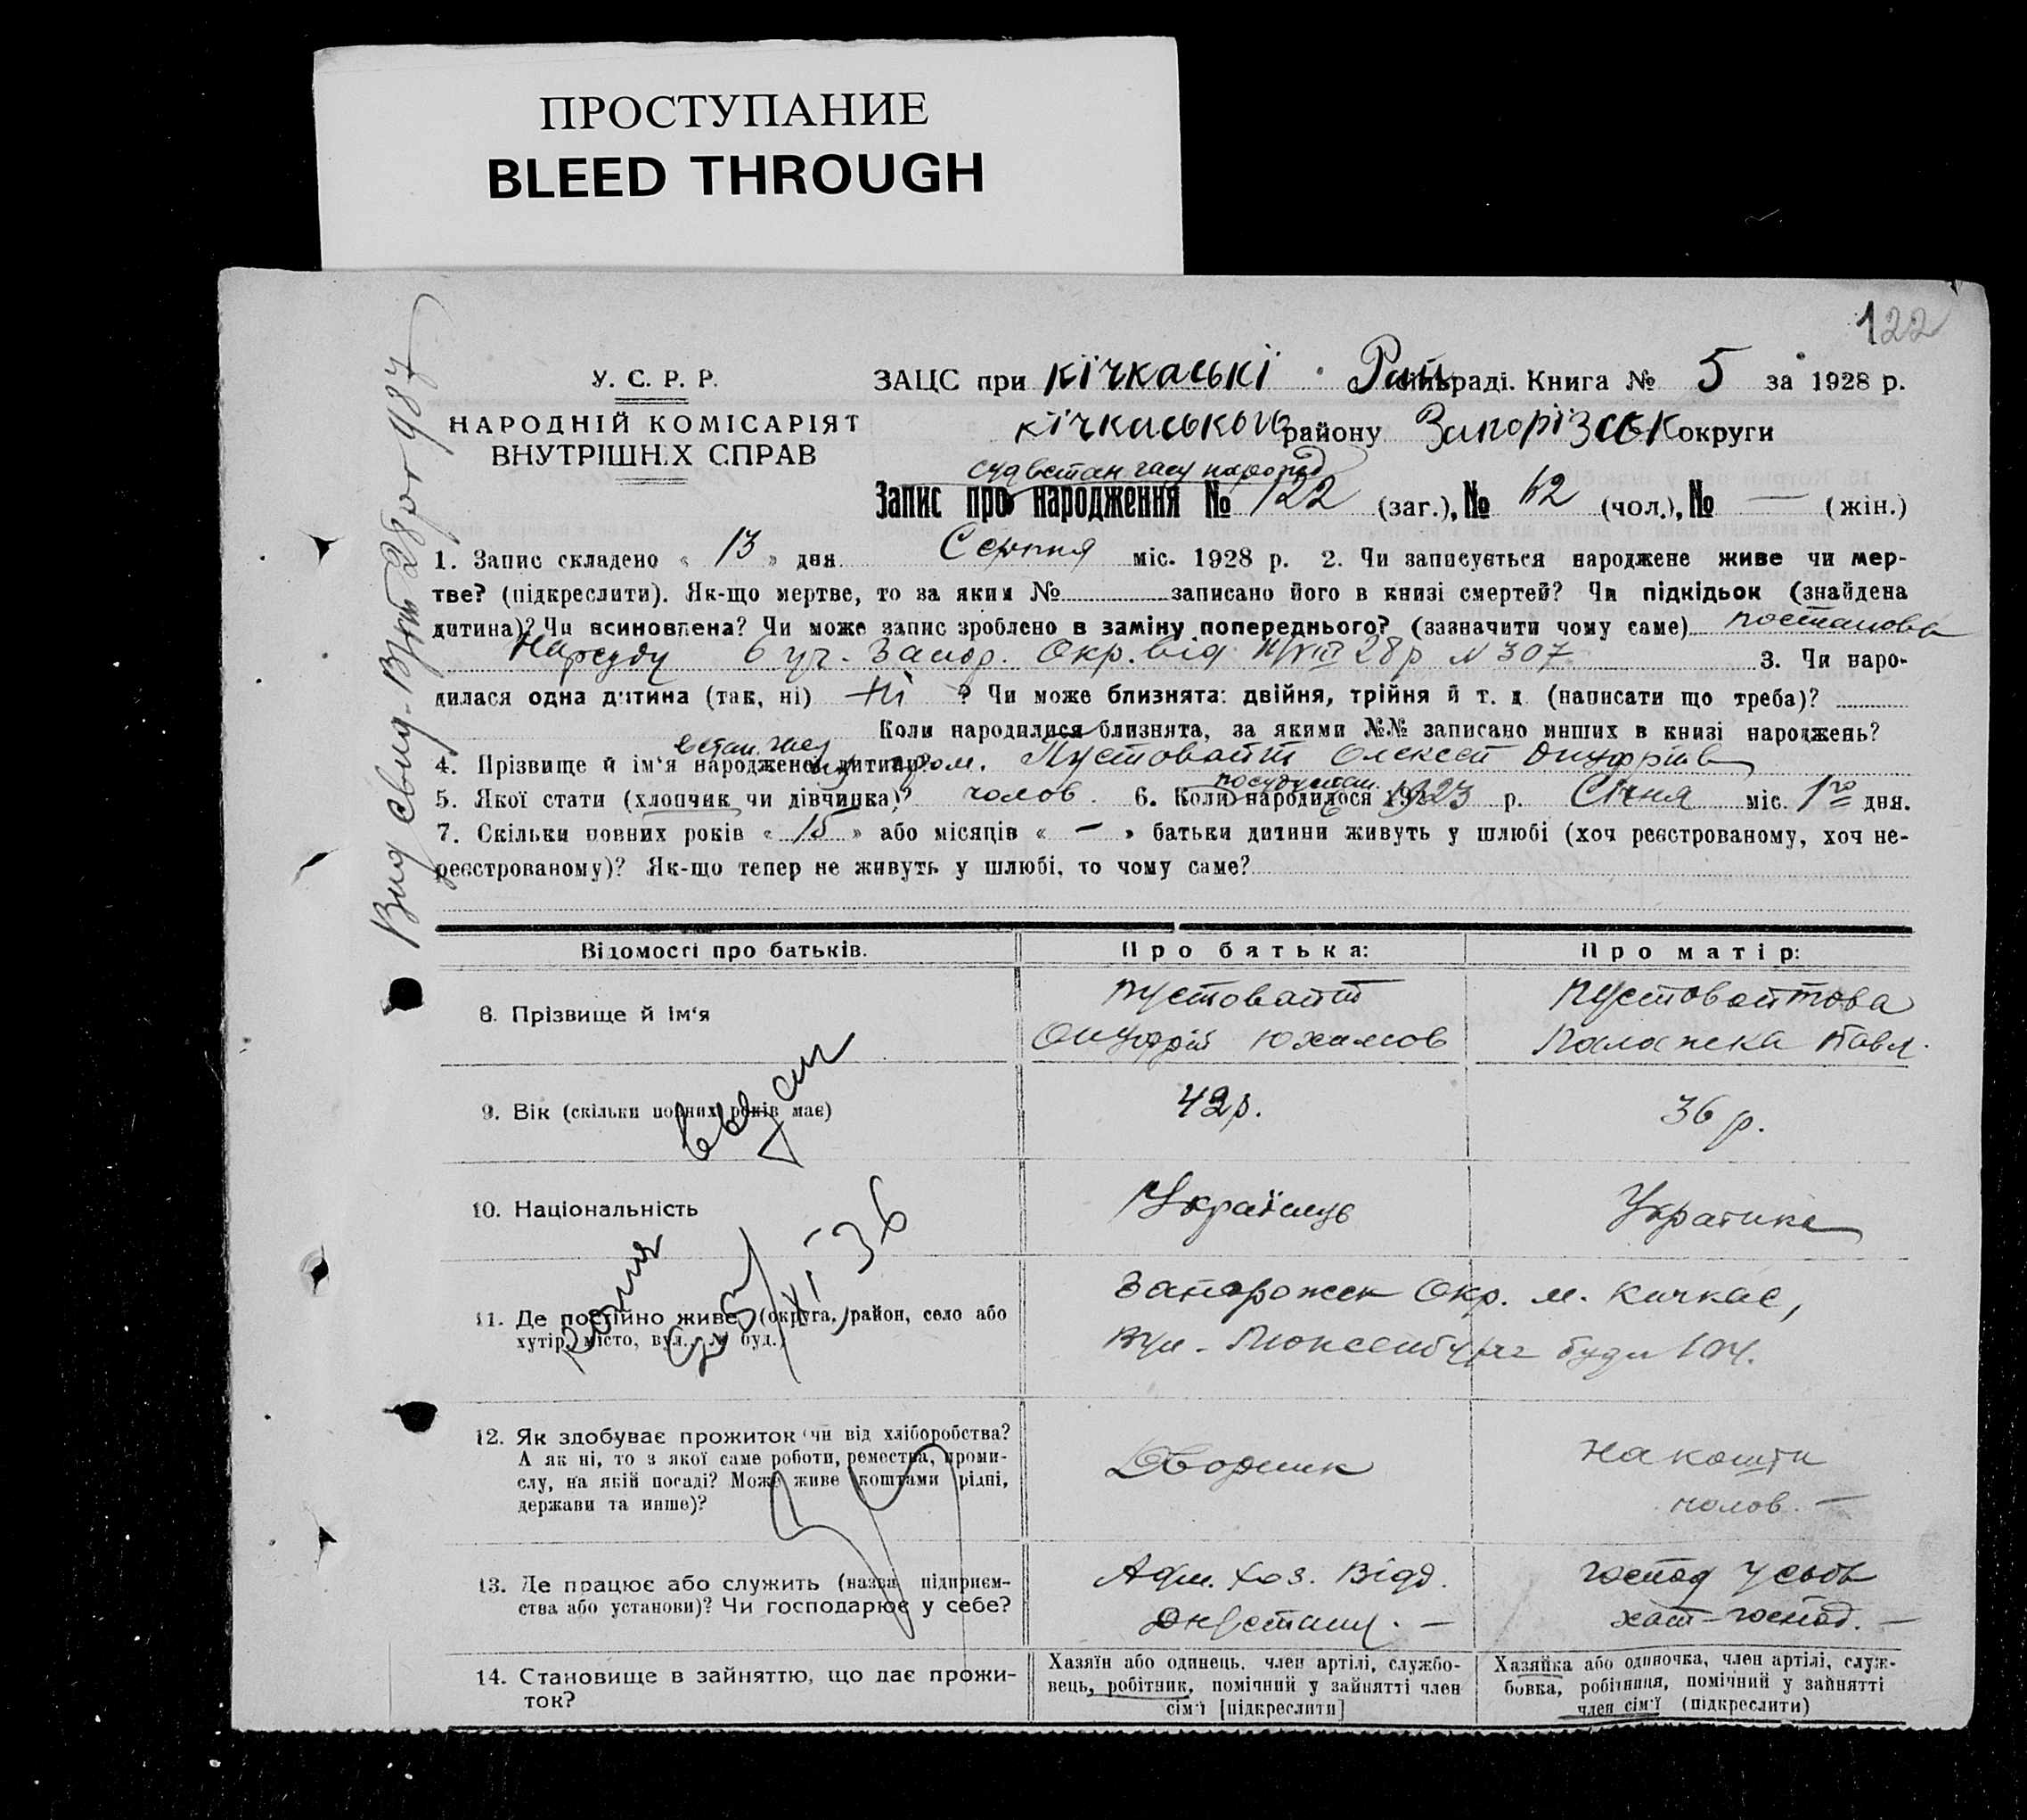 ПРОСТУПАНИЕ
BLEED THROUGH
122
У. С. Р. Р.
НАРОДНІЙ КОМІСАРІЯТ
ВНУТРІШНИХ СПРАВ
ЗАЦС при кічкаські Рай раді. Книга № 5 за 1928 р.
кічкаського району Запорізськ округи
суд встан. часу народ
Запис про народження № 122 (заг.), № (чол.), № — (жін.)
1. Запис складено « 13 » дня Серпня міс. 1928 р. 2. Чи записується народжене живе чи мер-
тве? (підкреслити). Як-що мертве, то за яким № записано його в книзі смертей? Чи підкідьок (знайдена
дитина)? Чи всиновлена? Чи може запис зроблено в заміну попереднього? (зазначити чому саме) постанова
Нарсуду 6 уч. Запор. Окр. від 28 р № 307 3. Чи наро-
дилася одна дитина (так, ні) Ні ? Чи може близнята: двійня, трійня й т. д. (написати що треба)?
Коли народилися близнята, за якими №№ записано инших в книзі народжень?
встан. час
4. Прізвище й ім'я народженої дитини? Пустовайт Олексій Онуфріїв
5. Якої статі (хлопчик чи дівчинка)? чолов. 6. Коли народилося 1923 р. Січня міс. 1го дня.
7. Скільки повних років « 15 » або місяців « — » батьки дитини живуть у шлюбі (хоч реєстрованому, хоч не-
реєстрованому)? Як-що тепер не живуть у шлюбі, то чому саме?
Відомості про батьків.
Про батька:
Про матір:
8. Прізвище й ім'я
Пустовайт
Онуфрій Юхимов
Пустовайтова
Палажка Павл.
9. Вік (скільки повних років має)
42 р.
36 р.
10. Національність
Українець
Українка
11. Де постійно живе (округа, район, село або
хутір, місто, вул., № буд.)
Запорожск Окр. м. Кичкас,
Вул. Люксембург буд. 104.
XI 36
12. Як здобуває прожиток (чи від хліборобства?
А як ні, то з якої саме роботи, ремества, проми-
слу, на якій посаді? Може живе коштами рідні,
держави та инше)?
Дворник
На кошти
чолов. —
13. Де працює або служить (назва підприєм-
ства або установи)? Чи господарює у себе?
Адм. Хоз. Відд.
—
господ у своїй
хат-господ. —
14. Становище в зайняттю, що дає прожи-
ток?
Хазяїн або одинець, член артілі, службо-
вець, робітник, помічний у зайнятті член
сім'ї [підкреслити]
Хазяйка або одиночка, член артілі, служ-
бовка, робітниця, помічний у зайнятті
член сім'ї (підкреслити)